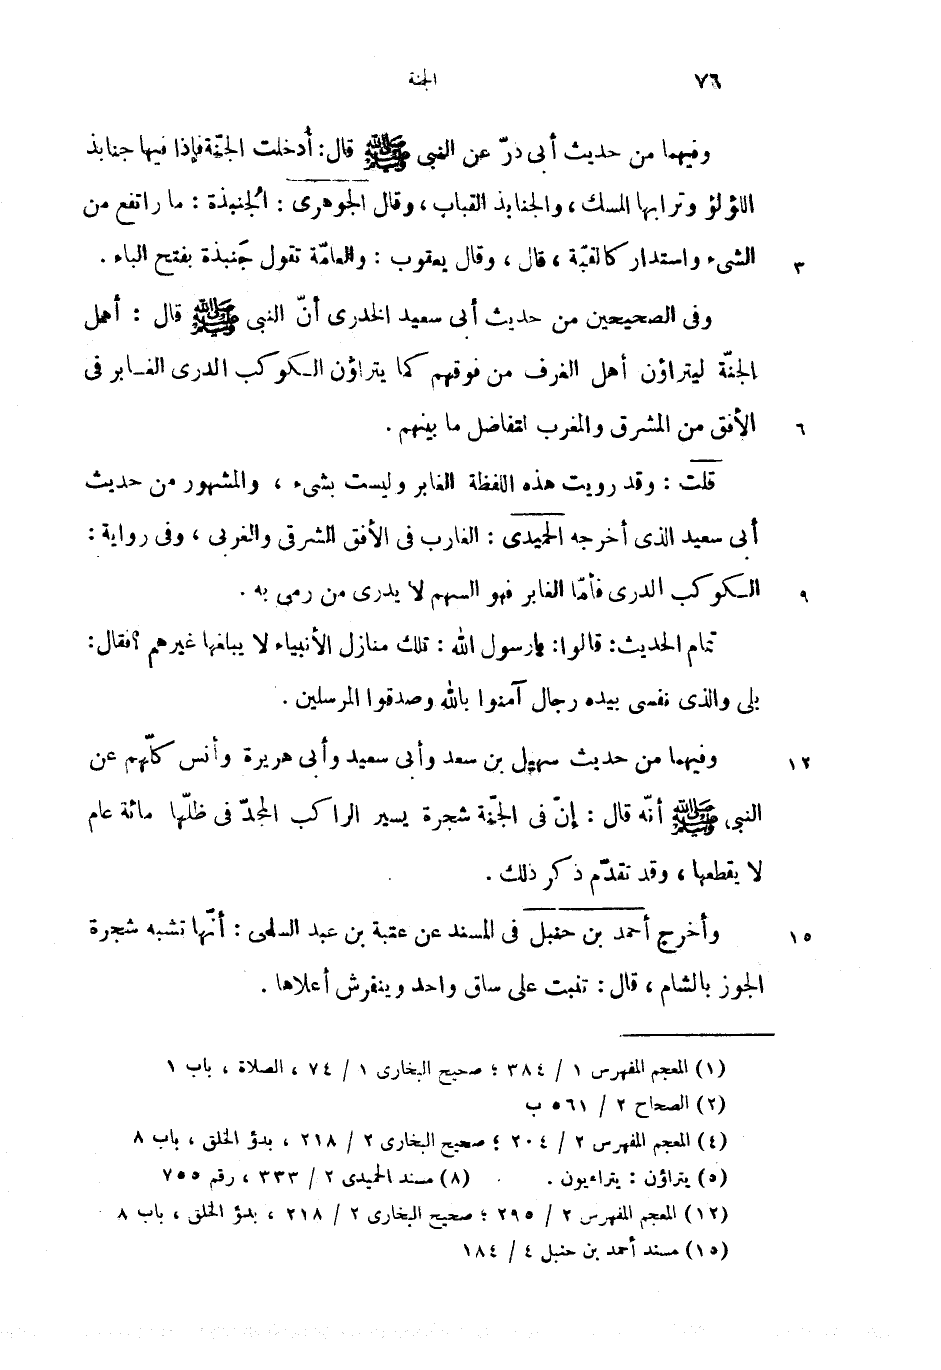 ٧٦ الجنة
وفيهما من حديث أبى ذرّ عن النبى ﷺ قال: أدخلت الجنّة فإذا فيها جنابذ
اللؤلؤ وترابها المسك ، والجنابذ القباب ، وقال الجوهرى : الجنبذة : ما راتفع من
٣ الشىء واستدار كالقبّة ، قال ، وقال يعقوب : والعامّة تقول جَنبذة بفتح الباء .
وفى الصحيحين من حديث أبى سعيد الخدرى أنّ النبى ﷺ قال : أهل
الجنّة ليتراؤن أهل الغرف من فوقهم كما يتراؤن الكوكب الدرى الغابر فى
٦ الأفق من المشرق والمغرب لتفاضل ما بينهم .
قلت : وقد رويت هذه اللفظة الغابر وليست بشىء ، والمشهور من حديث
أبى سعيد الذى أخرجه الحميدى : الغارب فى الأفق الشرقى والغربى ، وفى رواية :
٩ الكوكب الدرى فأمّا الغابر فهو السهم لا يدرى من رمى به .
تمام الحديث : قالوا : يارسول الله : تلك منازل الأنبياء لا يبلغها غيرهم ؟ فقال :
بلى والذى نفسى بيده رجال آمنوا بالله وصدقوا المرسلين .
١٢ وفيهما من حديث سهيل بن سعد وأبى سعيد وأبى هريرة وأنس كلّهم عن
النبى ﷺ أنّه قال : إنّ فى الجنّة شجرة يسير الراكب المجدّ فى ظلّها مائة عام
لا يقطعها ، وقد تقدّم ذكر ذلك .
١٥ وأخرج أحمد بن حنبل فى المسند عن عتبة بن عبد السلمى : أنّها تشبه شجرة
الجوز بالشام ، قال : تنبت على ساق واحد وينفرش أعلاها .
(١) المعجم المفهرس ١ / ٣٨٤ ؛ صحيح البخارى ١ / ٧٤ ، الصلاة ، باب ١
(٢) الصحاح ٢ / ٥٦١ ب
(٤) المعجم المفهرس ٢ / ٢٠٤ ؛ صحيح البخارى ٢ / ٢١٨ ، بدؤ الخلق ، باب ٨
(٥) يتراؤن : يتراءيون . (٨) مسند الحميدى ٢ / ٣٣٣ ، رقم ٧٥٥
(١٢) المعجم المفهرس ٢ / ٢٩٥ ؛ صحيح البخارى ٢ / ٢١٨ ، بدؤ الخلق ، باب ٨
(١٥) مسند أحمد بن حنبل ٤ / ١٨٤